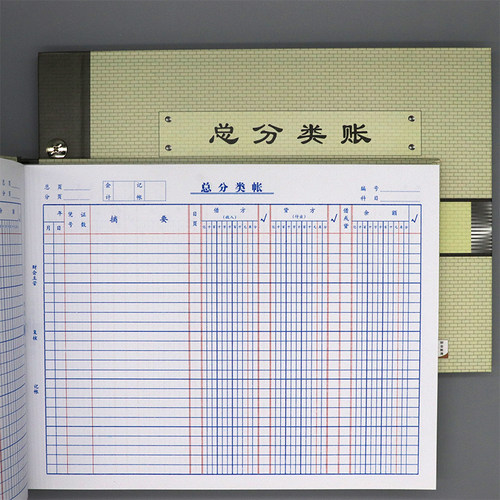 总分类账
总页
分页
会计
记帐
总分类帐
编号
科目
年
月 日
凭证
号数
摘要
日页
借方
(收入)
√
贷方
(付出)
√
借或贷
余额
√
财会主管
复核
记帐